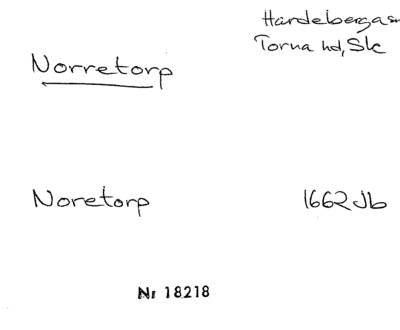 Hardeberga sn
Torna hd, Sk
Norretorp
Noretorp
1662 Jb
Nr 18218